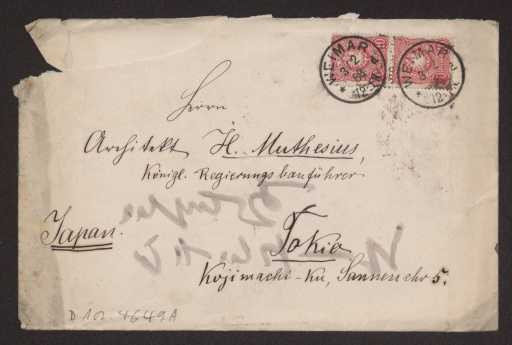 WEIMAR
3 2
WEIMAR
3
Herrn
Architekt H. Muthesius,
Königl. Regierungsbauführer
Japan.
Tokio
Kojimachi-Ku, Sannencho 5.